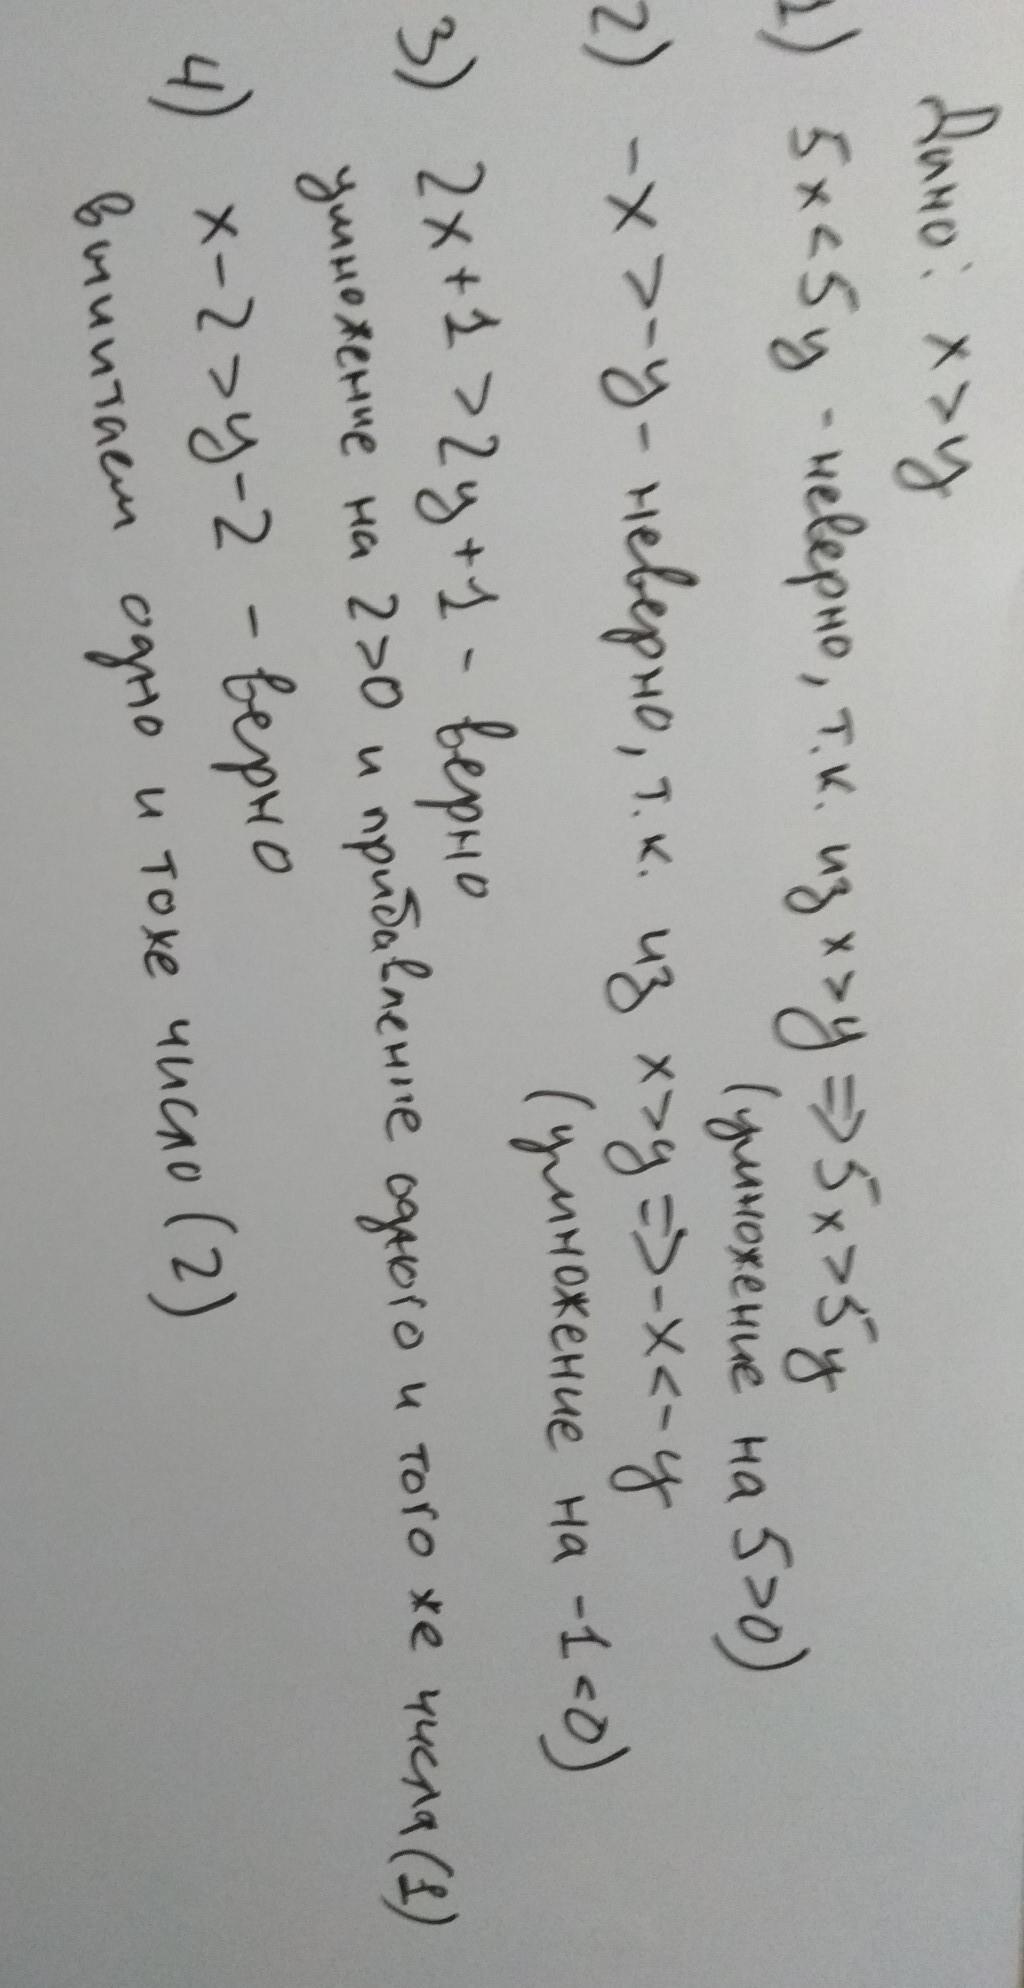 Дано: x>y
1) 5x<5y - неверно, т.к. из x>y => 5x>5y
(умножение на 5>0)
2) -x>-y - неверно, т.к. из x>y => -x<-y
(умножение на -1<0)
3) 2x+1>2y+1 - верно
умножение на 2>0 и прибавление одного и того же числа (1)
4) x-2>y-2 - верно
вычитаем одно и тоже число (2)